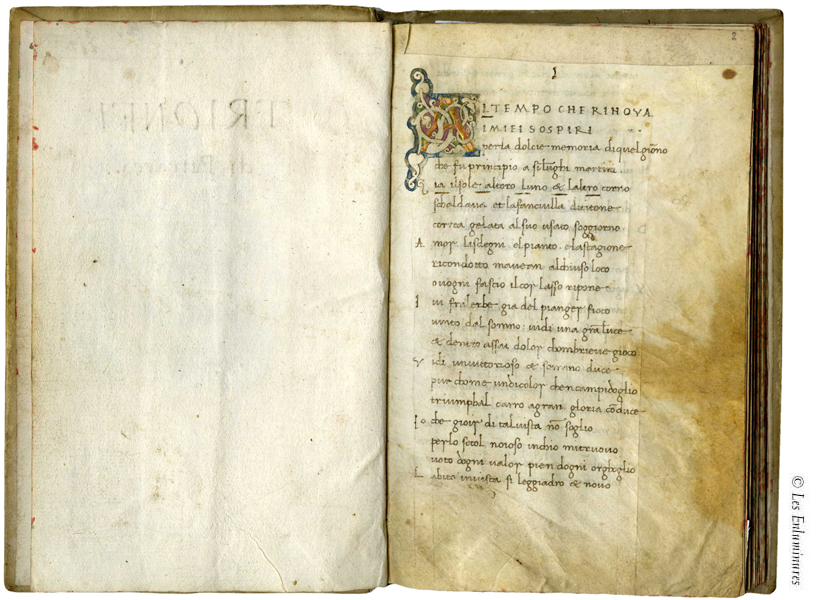 TRIONFI
di Petrarca
2
1
L TEMPO CHE RINOVA
I MIEI SOSPIRI
per la dolcie memoria di quel giorno
che fu principio a si lunghi martiri
G ia il sole al toro luno & laltro corno
schaldava et la fanciulla di titone
correa gelata al suo usato soggiorno
A mor li sdegni el pianto e la stagione
ricondotto maveano al chiuso loco
ovogni fascio il cor lasso ripone
I vi fra lerbe gia del pianger fioco
vinto dal somno vidi una gran luce
& dentro assai dolor chon brieve gioco
V idi un vittorioso & sovrano duce
pur chome un di color chen campidoglio
triumphal carro a gran gloria conduce
I o che gioir di tal vista non soglio
per lo secol noioso in chio mi truovo
voto dogni valor pien dogni orghoglio
L abito in vista si leggiadro & novo
© Les Enluminures